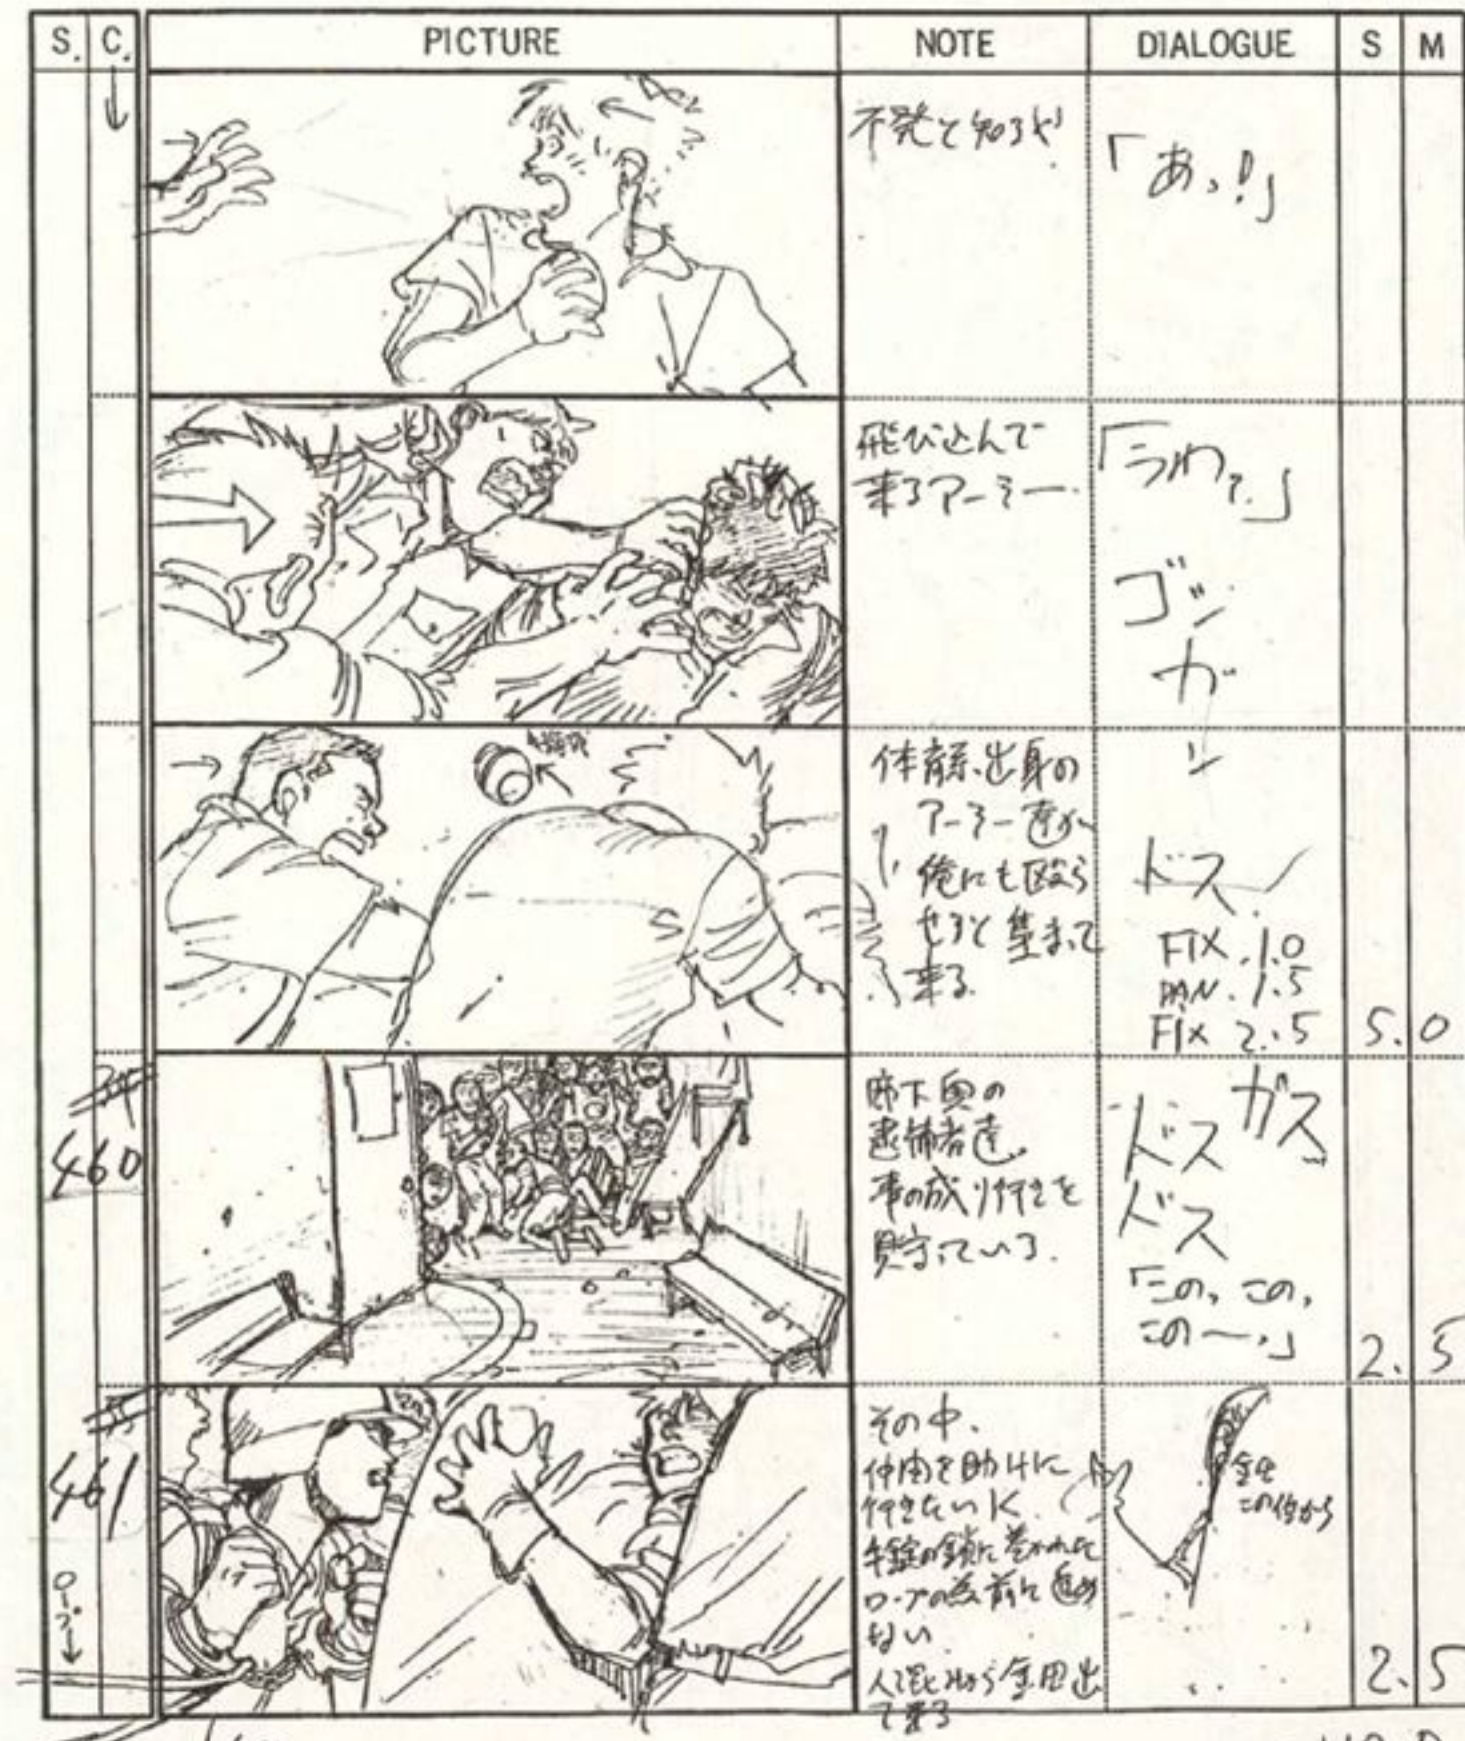 S. C. PICTURE NOTE DIALOGUE S M
不発と知るや
「あっ!」
飛び込んで
来るアーミー.
「うわァ.」
ゴッ
ガ
ッ
体育系出身の
アーミー達が
俺にも殴ら
せろと集まって
来る.
ドス
FIX .1.0
PAN. 1.5
FIX 2.5
5.0
460
廊下奥の
逮捕者達.
事の成り行きを
見守っている.
ガス
ドス
ドス
「この, この,
この〜.」
2.5
461
ロープ
その中.
仲間を助けに
行きたいK.
手錠の鎖に巻かれた
ロープの為前に進め
ない.
人混みから金田出
て来る
金田
この位から
2.5